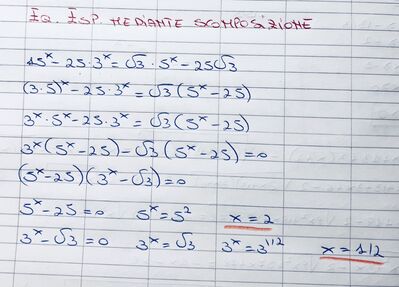 EQ. ESP. MEDIANTE SCOMPOSIZIONE
15ˣ - 25 · 3ˣ = √3 · 5ˣ - 25√3
(3 · 5)ˣ - 25 · 3ˣ = √3 (5ˣ - 25)
3ˣ · 5ˣ - 25 · 3ˣ = √3 (5ˣ - 25)
3ˣ (5ˣ - 25) - √3 (5ˣ - 25) = 0
(5ˣ - 25) (3ˣ - √3) = 0
5ˣ - 25 = 0 5ˣ = 5² x = 2
3ˣ - √3 = 0 3ˣ = √3 3ˣ = 3^1/2 x = 1/2